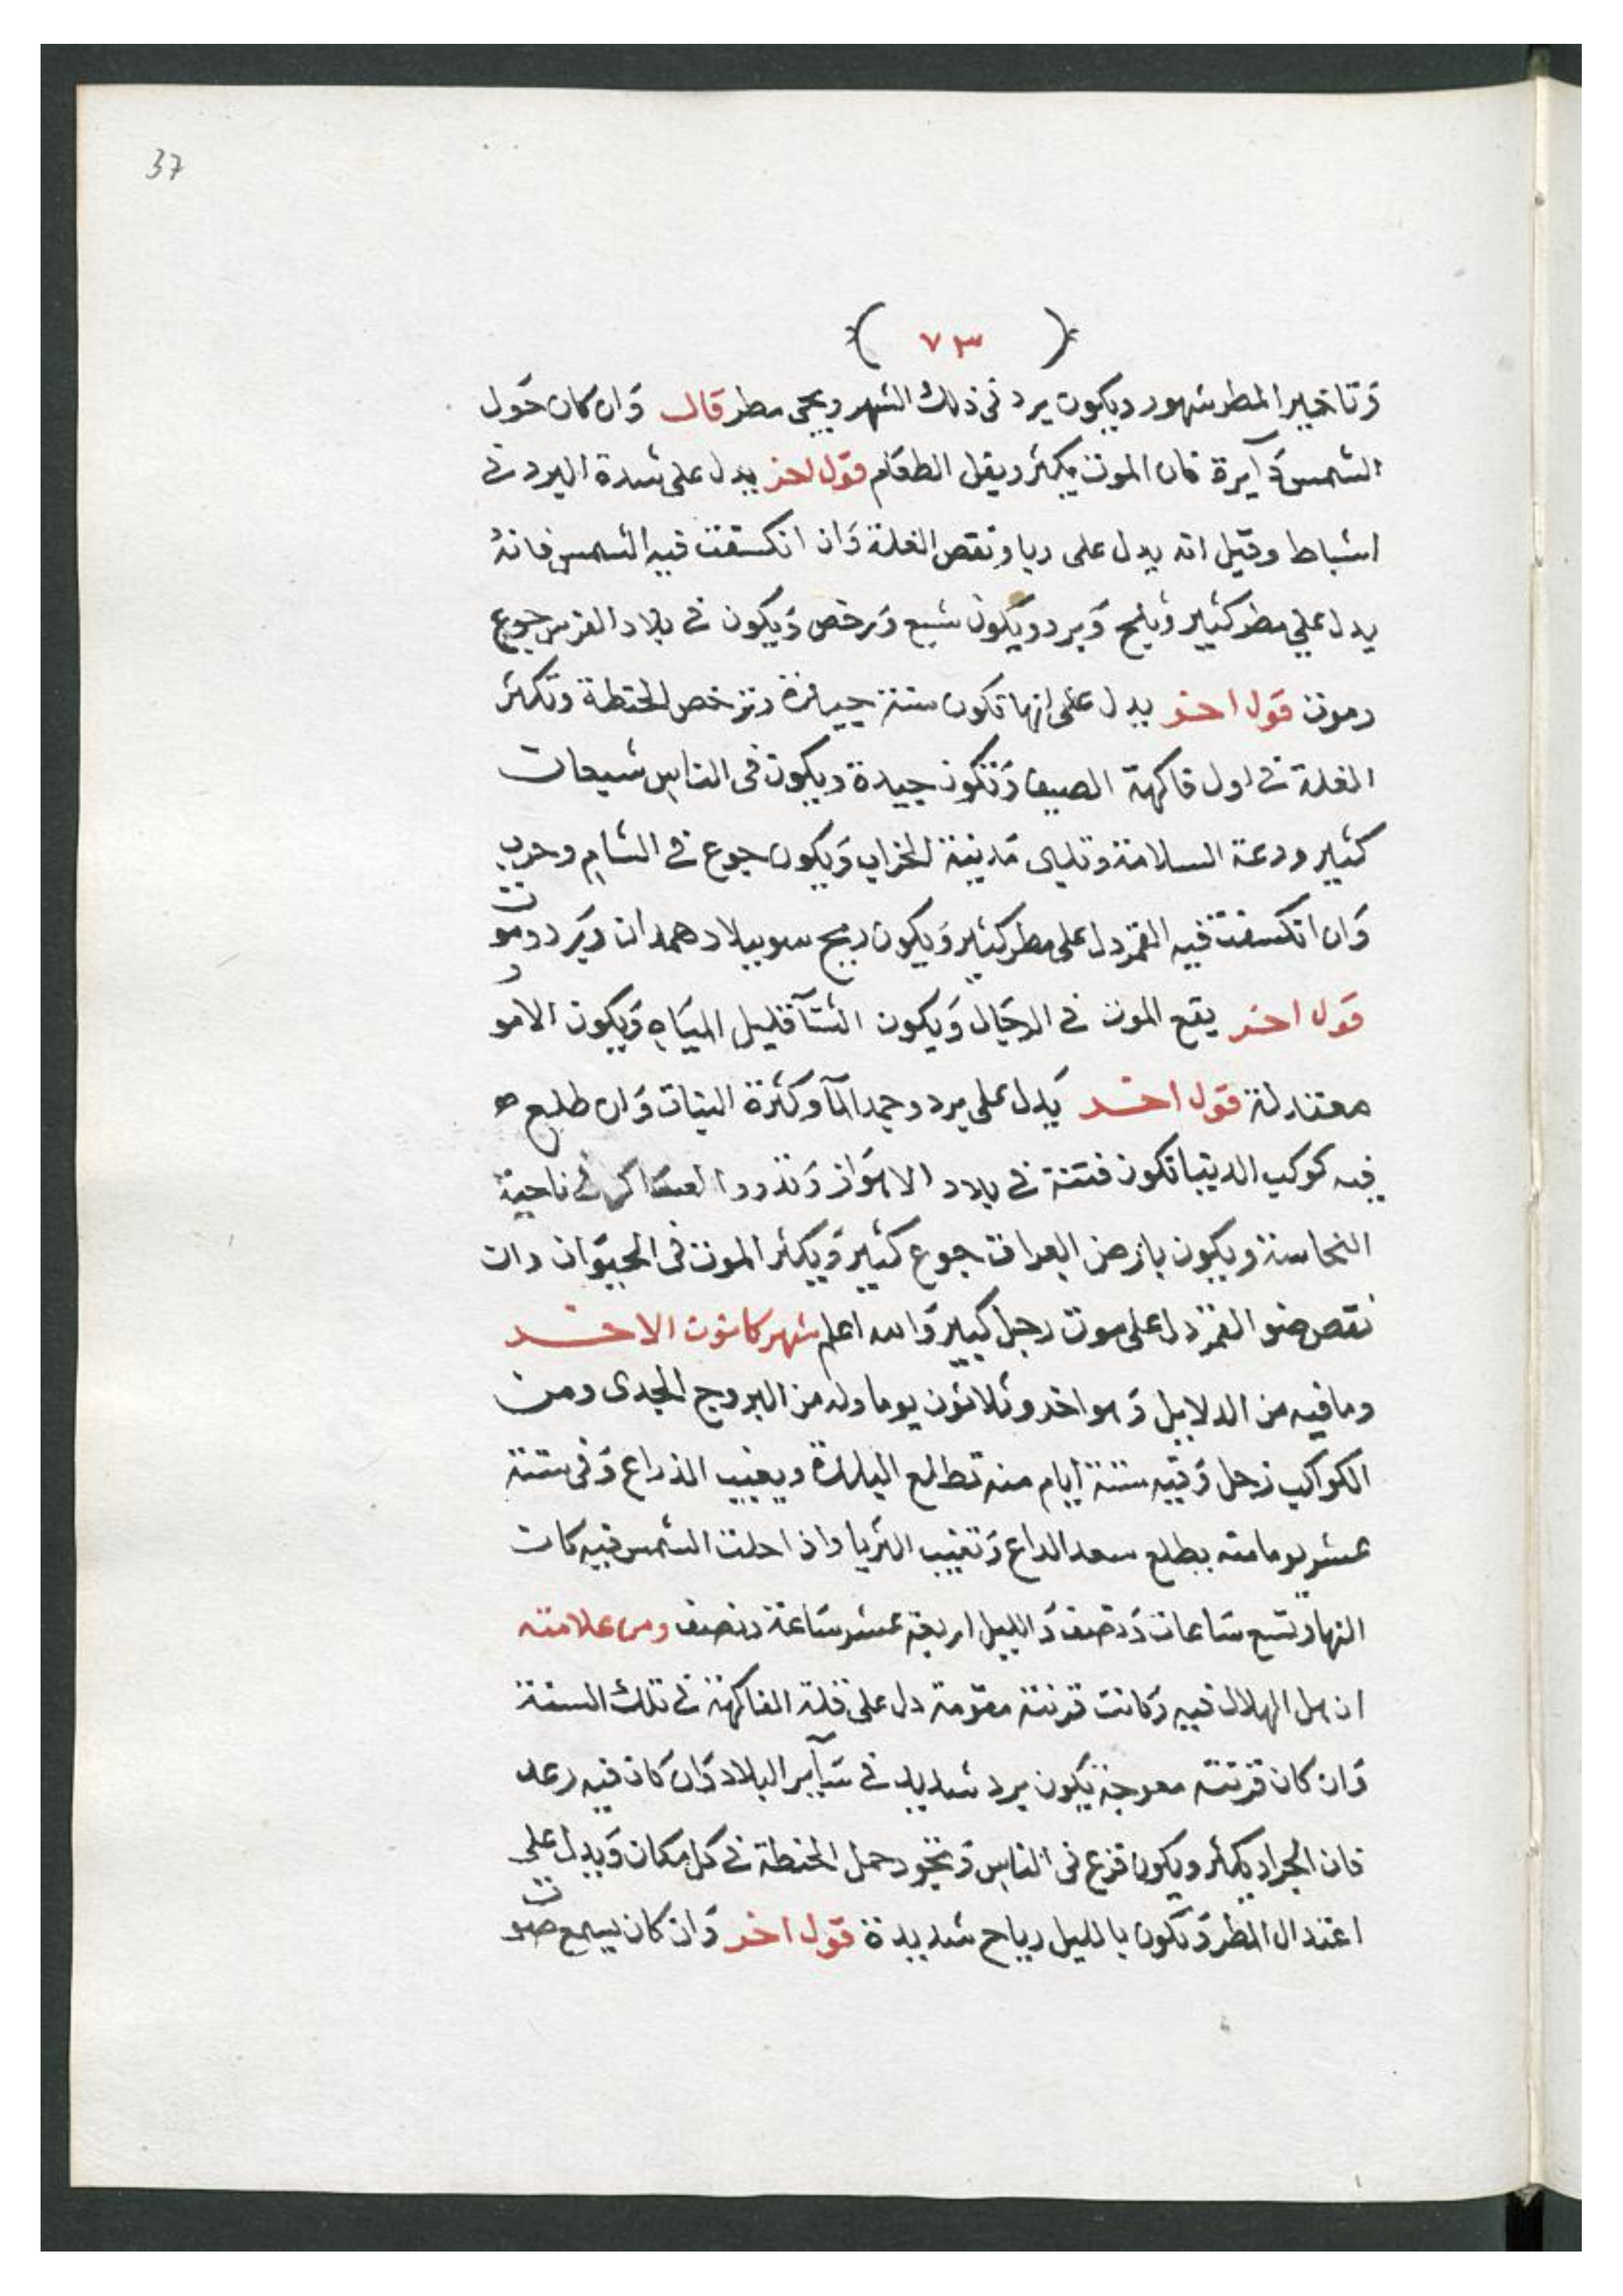 37
( ٧٣ )
وتاخير المطر شهور ويكون برد فى ذلك الشهر ويجى مطر قال وان كان حول
الشمس دآيرة فان الموت يكثر ويقل الطعام قول اخر يدل على شدة البرد فى
اشباط وقيل انه يدل على وبا ونقص الغلة وان انكسفت فيه الشمس فانه
يدل على مطر كثير وثلج وبرد ويكون شبع ورخص ويكون فى بلاد الفرس جوع
وموت قول اخر يدل على انها تكون سنة جيدة وترخص الحنطة وتكثر
الغلة فى اول فاكهة الصيف وتكون جيدة ويكون فى الناس شبعات
كثير ودعة السلامة مدينة الخراب ويكون جوع فى الشام وحرب
وان انكسفت فيه القمر دل على مطر كثير ويكون ريح سو ببلاد همدان وبرد وموت
قول اخر يقع الموت فى الرجال ويكون الشتآ قليل المياه ويكون الامور
معتدلة قول اخر يدل على برد وجمد المآ وكثرة النبات وان طلع
فيه كوكب الدنبا تكون فتنة فى بلاد الاهواز وتدور العساكر فى ناحية
ويكون بارض العراق جوع كثير ويكثر الموت فى الحيوان وان
نقص ضو القمر دل على موت رجل كبير والله اعلم شهر كانون الاخر
وما فيه من الدلايل وهو احد وثلاثون يوما وله من البروج الجدى ومن
الكواكب زحل وفيه ستة ايام منه تطلع البلدة ويغيب الذراع وفى ستة
عشر يوما منه يطلع سعد الداع وتغيب الثريا واذا حلت الشمس فيه كان
النهار تسع ساعات ونصف والليل اربعة عشر ساعة ونصف ومن علامته
ان هل الهلال فيه وكانت قرنته مقومة دل على قلة الفاكهة فى تلك السنة
وان كان قرنته معوجة يكون برد شديد فى سآير البلاد وان كان فيه رعد
فان الجراد يكثر ويكون فزع فى الناس وتجود حمل الحنطة فى كل مكان ويدل على
اعتدال المطر وتكون بالليل رياح شديدة قول اخر وان كان يسمع صوت